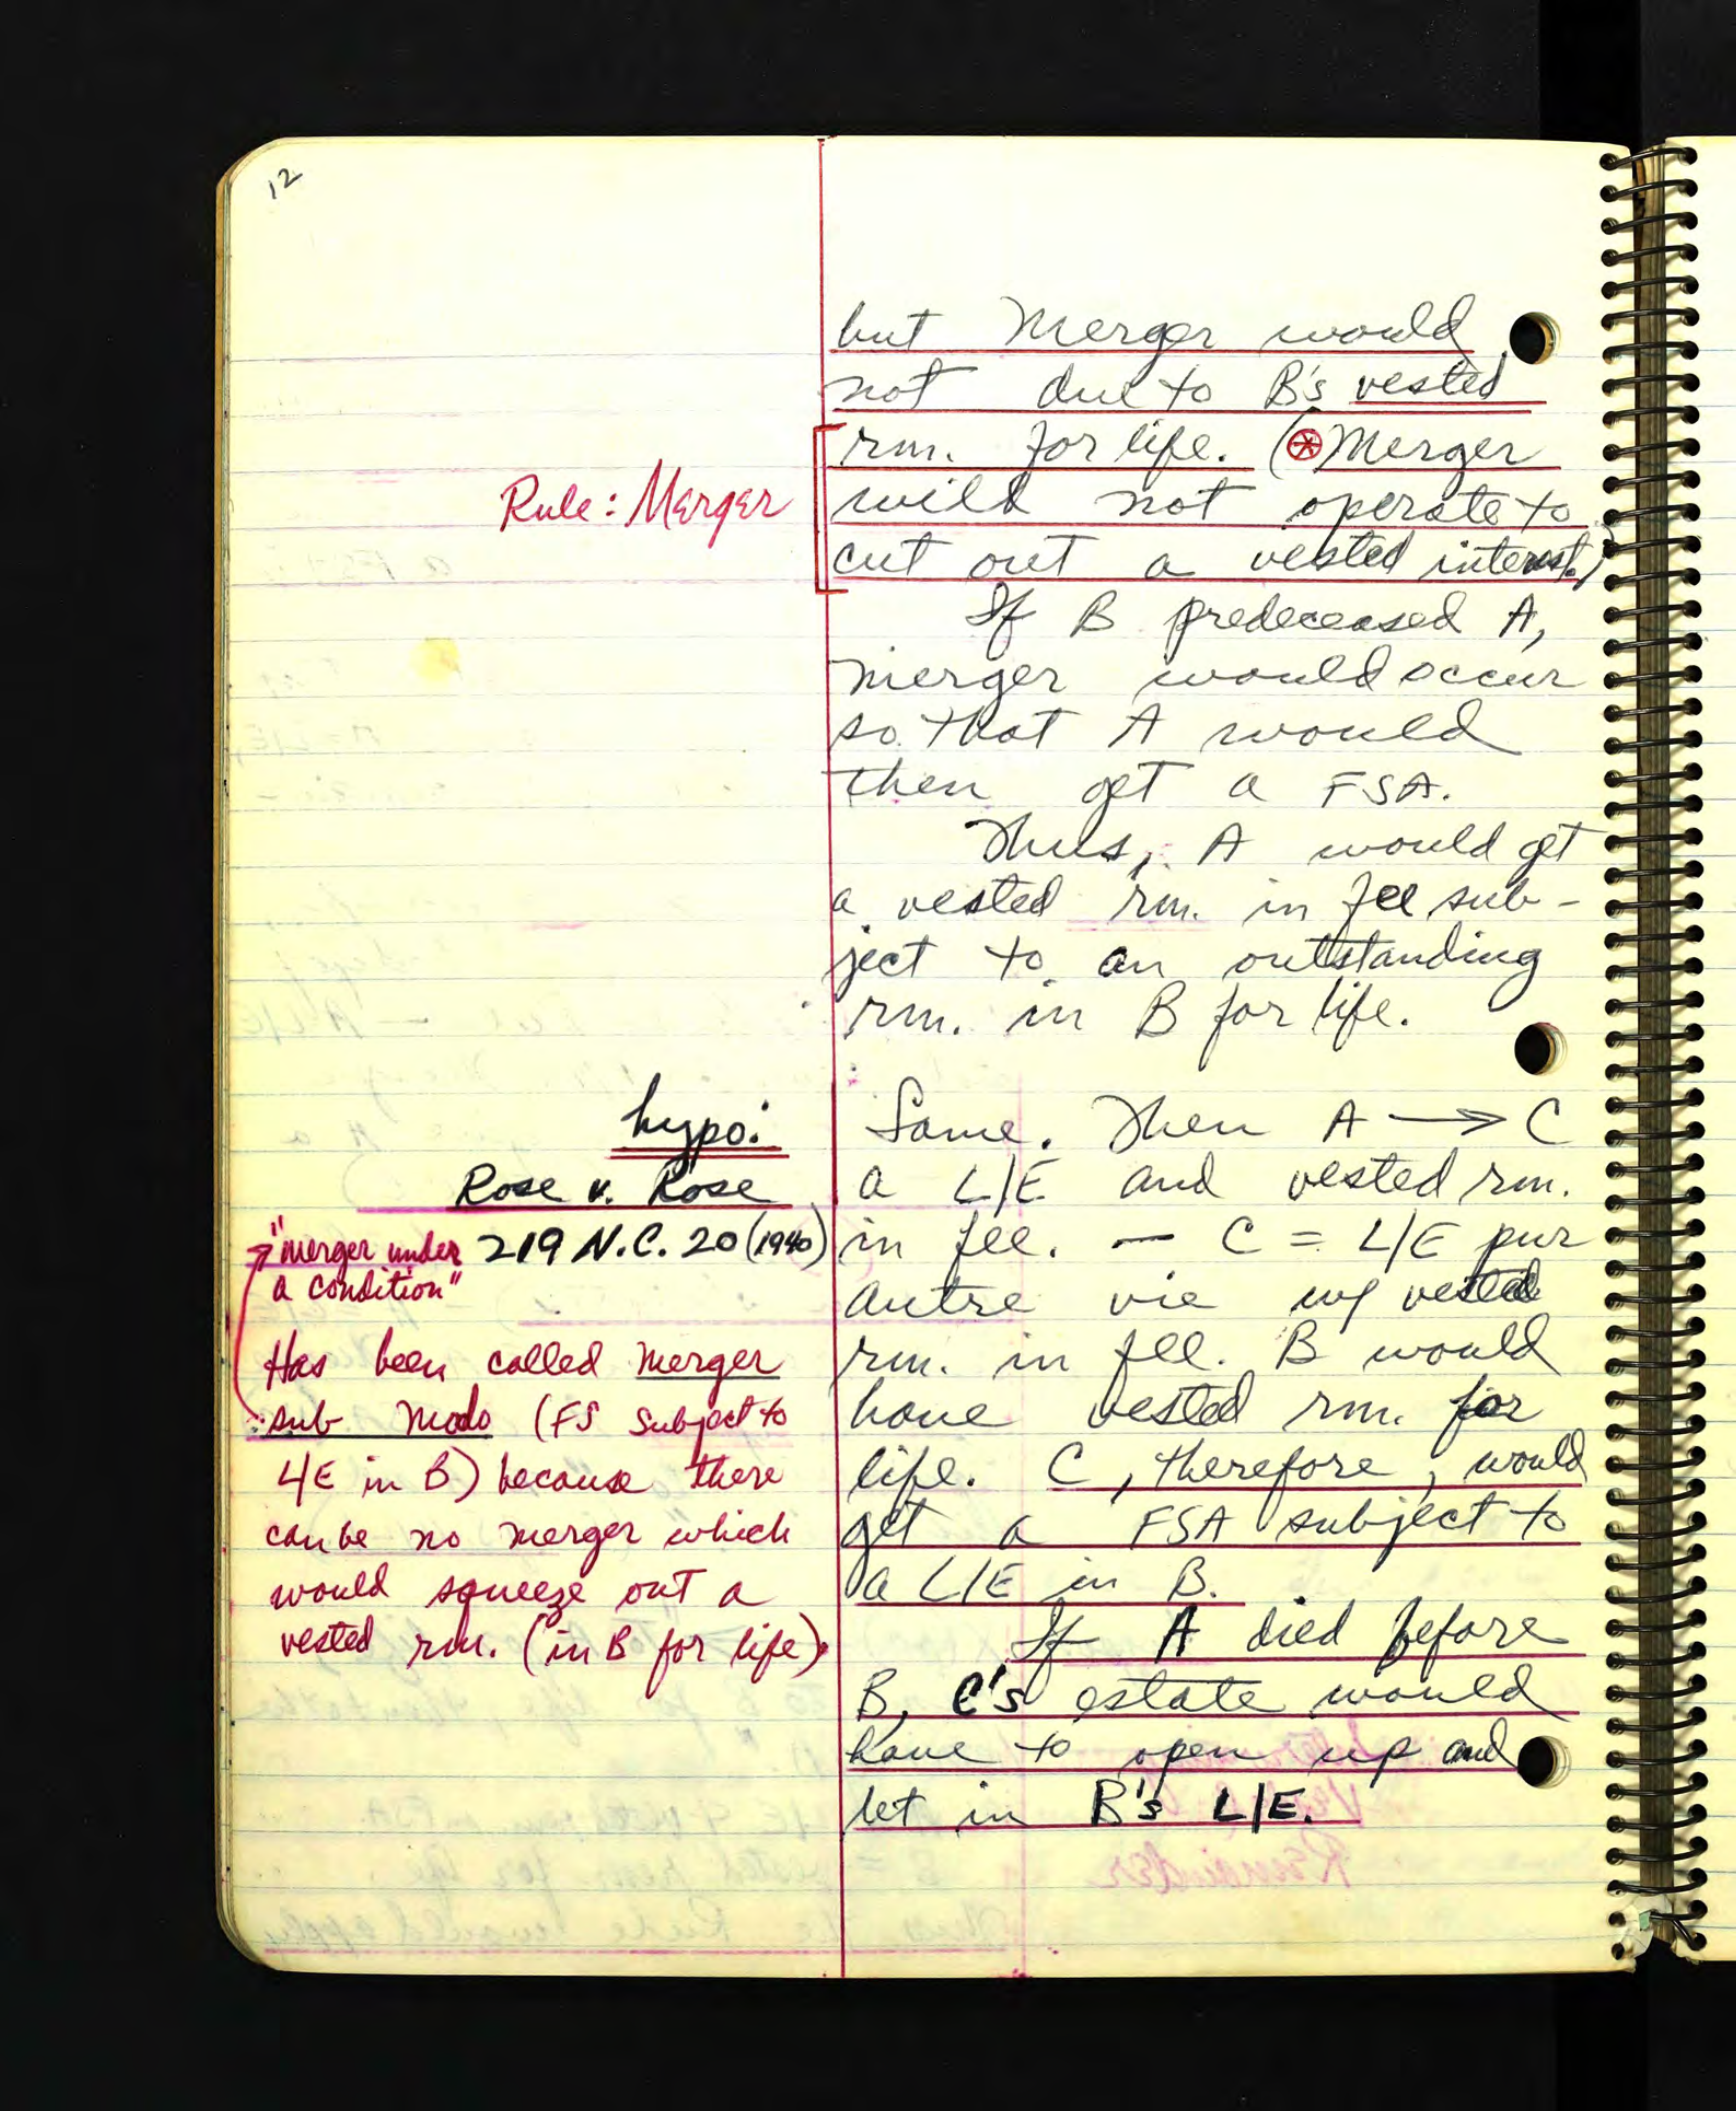 12
but Merger would
not due to B's vested
rm. for life. (⊛ Merger
will not operate to
cut out a vested interest.)
Rule: Merger
If B predeceased A,
merger would occur
so that A would
then get a FSA.
Thus, A would get
a vested rm. in fee sub-
ject to an outstanding
rm. in B for life.
hypo:
Rose v. Rose
219 N.C. 20 (1940)
"merger under
a condition"
Has been called merger
sub modo (FS subject to
L/E in B) because there
can be no merger which
would squeeze out a
vested rm. (in B for life).
Same. Then A → C
a L/E and vested rm.
in fee. — C = L/E pur
autre vie w/ vested
rm. in fee. B would
have vested rm. for
life. C, therefore, would
get a FSA subject to
a L/E in B.
If A died before
B, C's estate would
have to open up and
let in B's L/E.